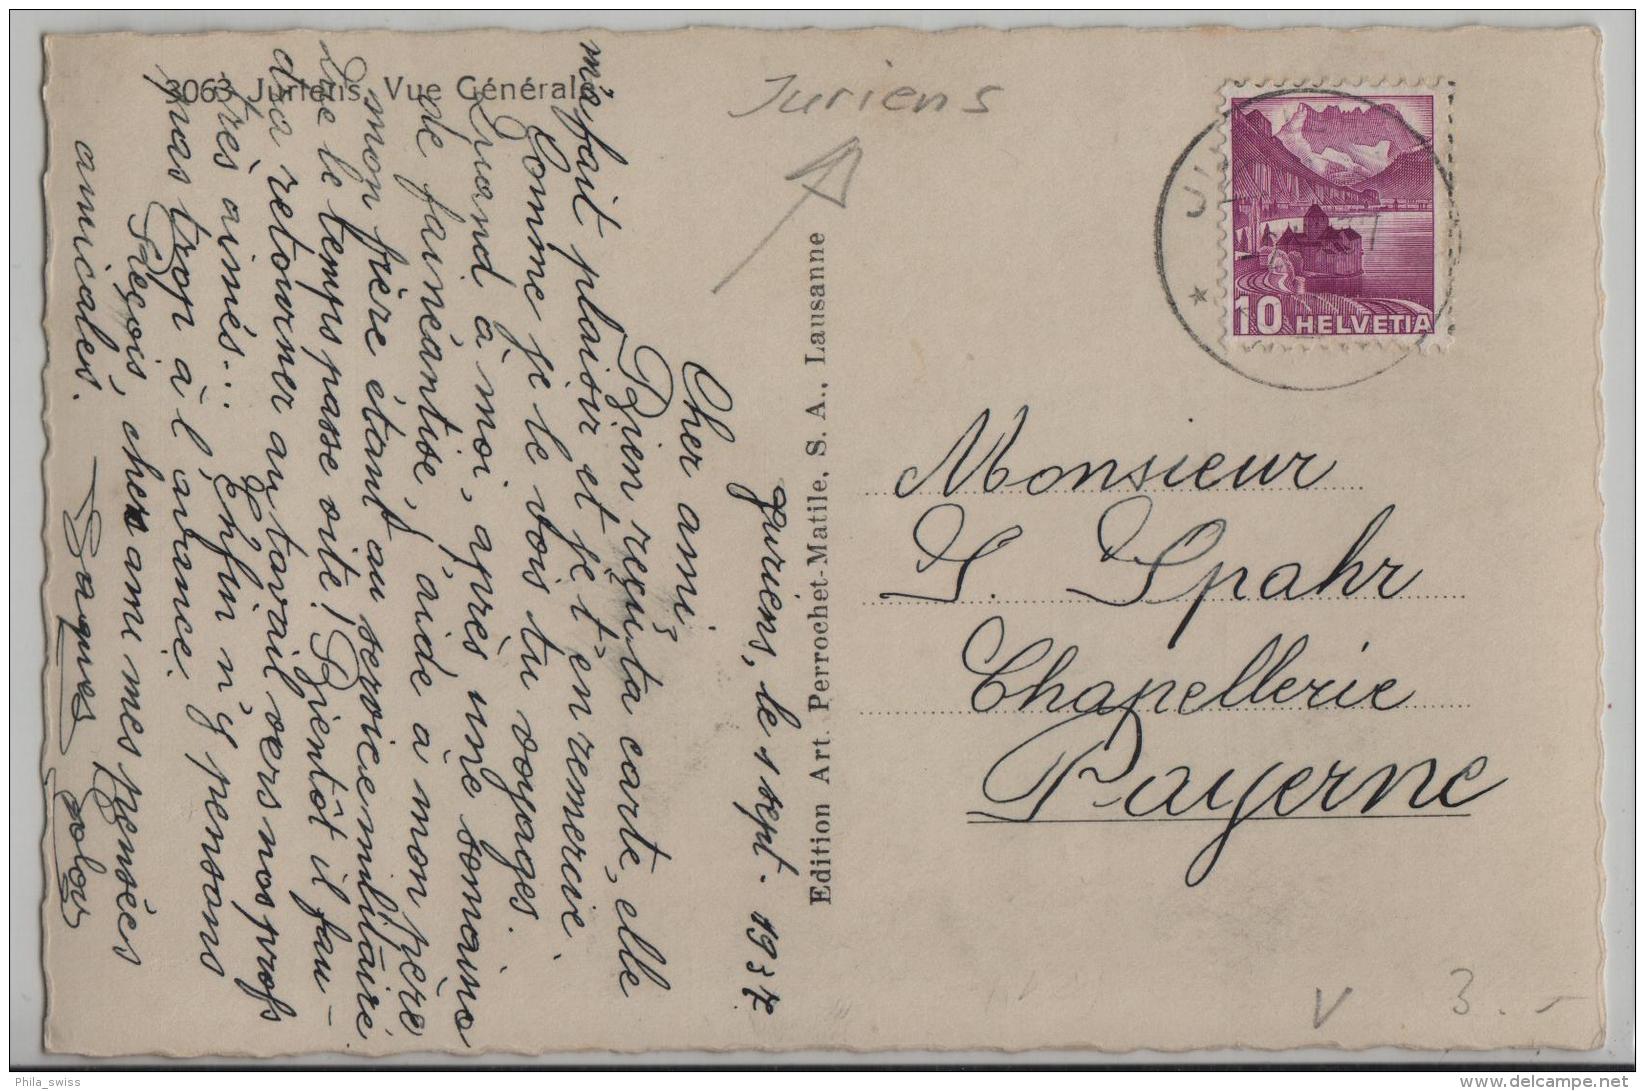 3063 Juriens, Vue Générale
Juriens
10 HELVETIA
Edition Art. Perrochet-Matile, S. A., Lausanne
Juriens, le 1 sept. 1937
Cher ami,
Bien reçu ta carte, elle
m'a fait plaisir et je t'en remercie
Comme je le vois tu voyages.
Quand à moi, après une semaine
de fainéantise, j'aide à mon père
mon frère étant au service militaire
Que le temps passe vite! Bientôt il fau-
dra retourner au travail vers nos profs
très aimés... Enfin n'y pensons
pas trop à l'avance.
Reçois, cher ami mes pensées
amicales.
Jacques
Monsieur
J. Spahr
Chapellerie
Payerne
V
3.-
Phila_swiss
delcampe.net